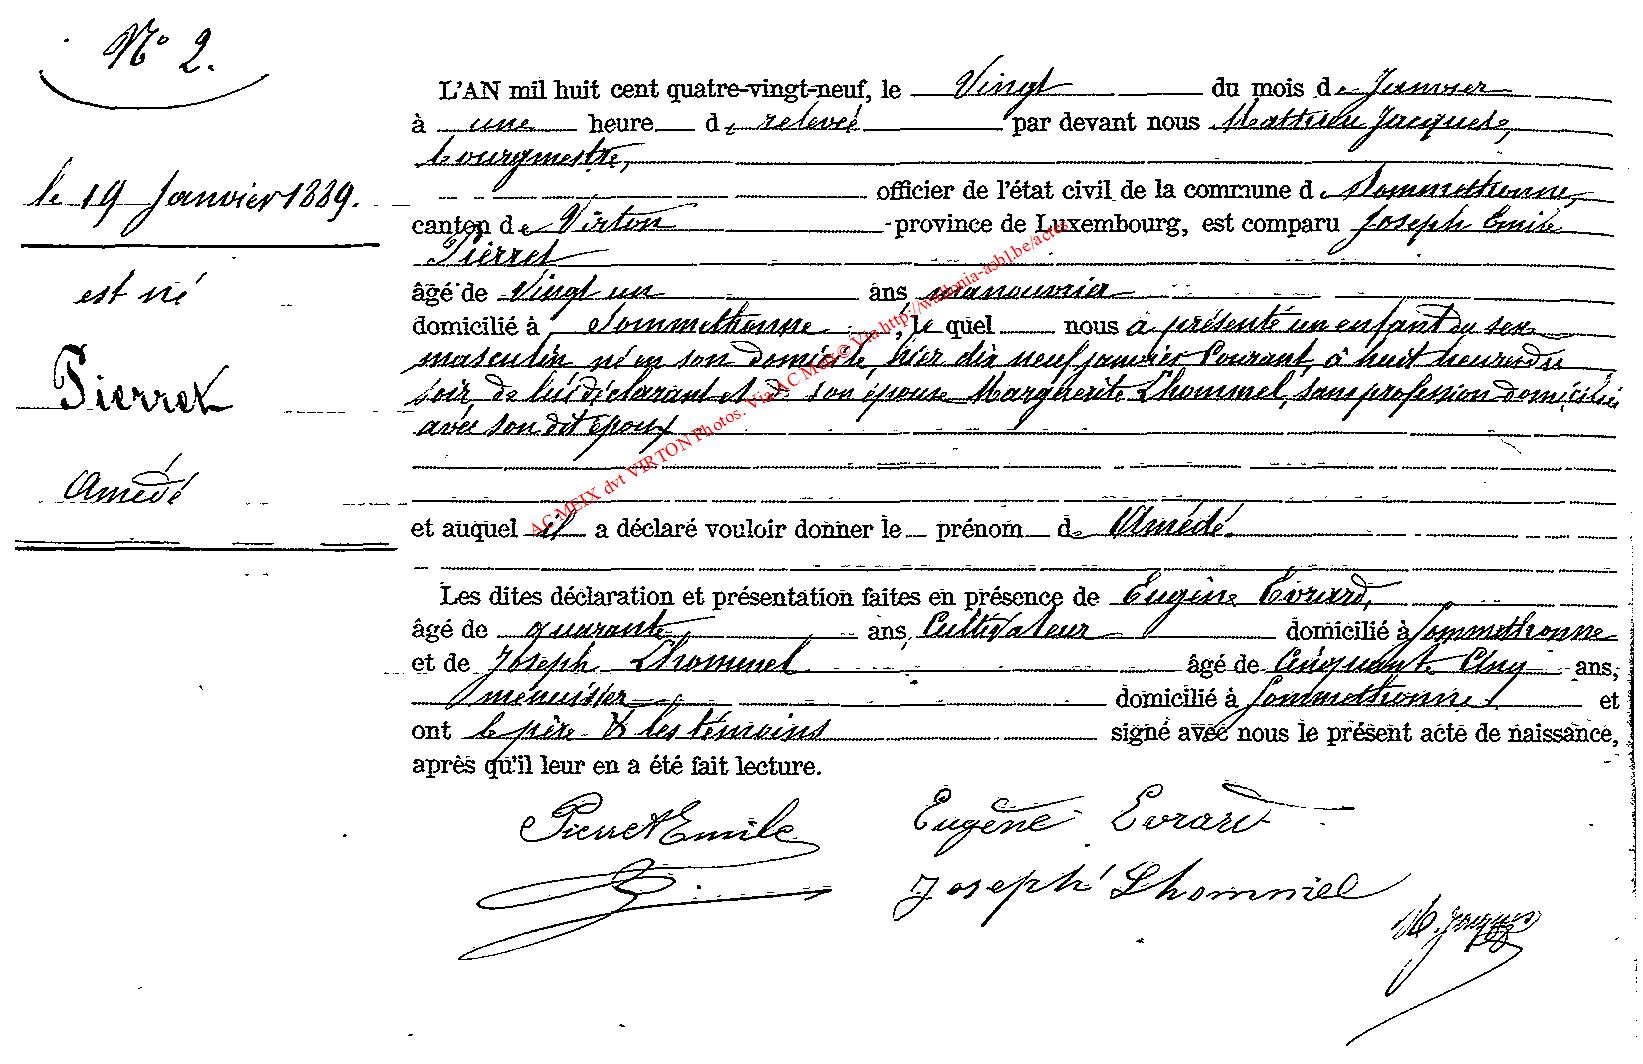 N° 2.
le 19 Janvier 1889.
est né
Pierret
Amédé
L'AN mil huit cent quatre-vingt-neuf, le Vingt du mois de Janvier
à une heure de relevée par devant nous Mathieu Jacques,
bourgmestre,
officier de l'état civil de la commune de Sommethonne,
canton de Virton province de Luxembourg, est comparu Joseph Emile
Pierret
âgé de Vingt un ans manouvrier
domicilié à Sommethonne, le quel nous a présenté un enfant du sexe
masculin né en son domicile, hier dix neuf janvier Courant, à huit heures du
soir de lui déclarant et de son épouse Marguerite Lhommel, sans profession domiciliée
avec son dit époux
et auquel il a déclaré vouloir donner le prénom de Amédé.
Les dites déclaration et présentation faites en présence de Eugène Evrard,
âgé de quarante ans, Cultivateur domicilié à Sommethonne
et de Joseph Lhommel âgé de Cinquante Cinq ans,
menuisier domicilié à Sommethonne et
ont le père & les témoins signé avec nous le présent acte de naissance,
après qu'il leur en a été fait lecture.
Pierret Emile
Eugène Evrard
Joseph Lhommel
M. Jacques
AC MEIX dvt VIRTON Photos. Via AC MEIX© Via http://wallonia-asbl.be/actes